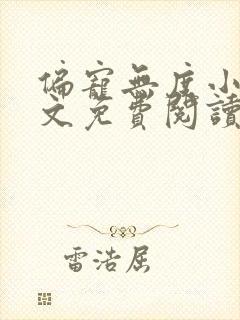 偏寵無度小
文免費閱讀
雷浩屈